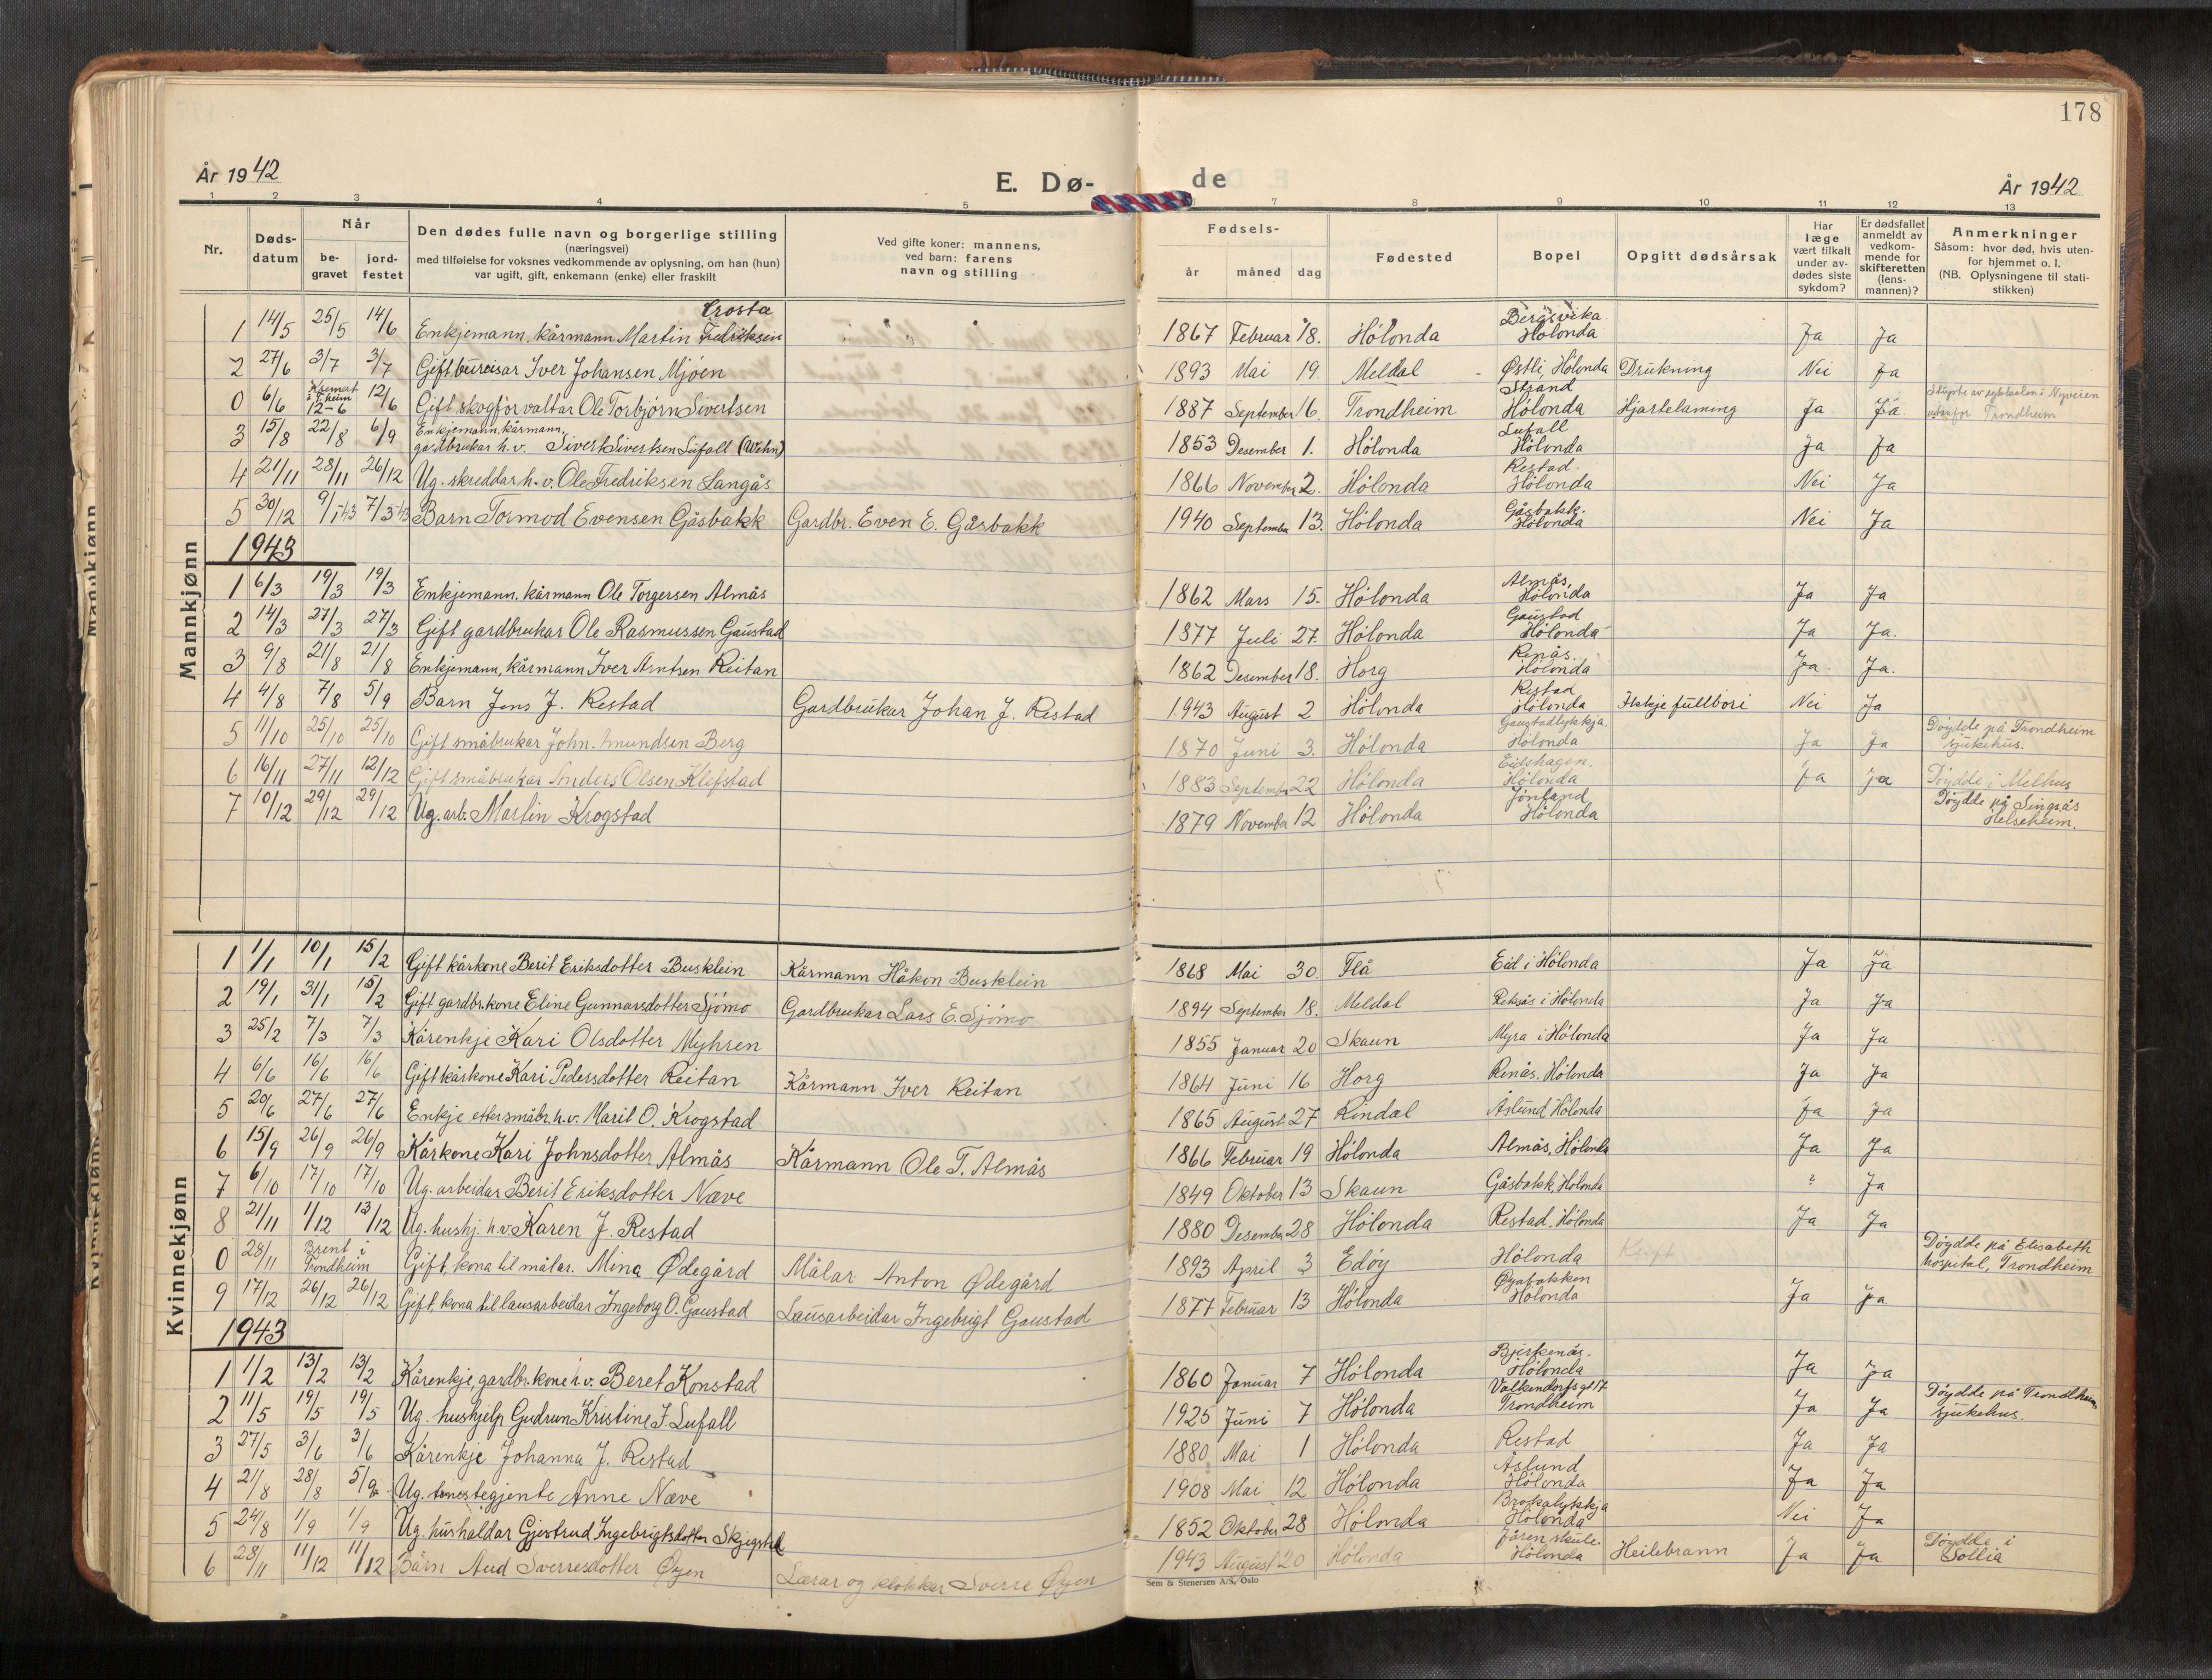 178
År 1942
E. Dø-
de
År 1942
1 2 3 4 5 6 7 8 9 10 11 12 13
Nr.
Døds-
datum
Når
be-
gravet
jord-
festet
Den dødes fulle navn og borgerlige stilling
(næringsvei)
med tilføielse for voksnes vedkommende av oplysning, om han (hun)
var ugift, gift, enkemann (enke) eller fraskilt
Ved gifte koner: mannens,
ved barn: farens
navn og stilling
Fødsels-
år måned dag
Fødested
Bopel
Opgitt dødsårsak
Har
læge
vært tilkalt
under av-
dødes siste
sykdom?
Er dødsfallet
anmeldt av
vedkom-
mende for
skifteretten
(lens-
mannen)?
Anmerkninger
Såsom: hvor død, hvis uten-
for hjemmet o. l.
(NB. Oplysningene til stati-
stikken)
Mannkjønn
Crosta Bergsvika
1 14/5 25/5 14/6 Enkjemann, kårmann Martin Fredriksen " " " 1867 Februar 18. Hølonda Hølonda Ja Ja
2 27/6 3/7 3/7 Gift bureisar Iver Johansen Mjøen 1893 Mai 19. Meldal - Østli, Hølonda Drukning Nei Ja
Kremert i T.heim Strand
0 6/6 12-6 12/6 Gift skogforvaltar Ole Torbjørn Sivertsen 1887 September 16. Trondheim Hølonda Hjartelaming Ja Ja Styrte av sykkelen i Nyveien utanfor Trondheim
Enkjemann, kårmann, Lufall
3 15/8 22/8 6/9 gardbrukar h.v. Sivert Sivertsen Lufall (Wehn) 1853 Desember 1. Hølonda Hølonda Ja Ja
Restad.
4 21/11 28/11 26/12 Ug. skreddar h.v. Ole Fredriksen Langås 1866 November 2. Hølonda Hølonda Nei Ja
Gåsbakk.
5 30/12 9/1-43 7/3-43 Barn Tormod Evensen Gåsbakk Gardbr. Even E. Gåsbakk 1940 September 13. Hølonda Hølonda Nei Ja
1943
Almås,
1 6/3 19/3 19/3 Enkjemann, kårmann Ole Torgersen Almås 1862 Mars 15. Hølonda Hølonda Ja Ja
Gaustad
2 14/3 27/3 27/3 Gift gardbrukar Ole Rasmussen Gaustad 1877 Juli 27. Hølonda Hølonda Ja Ja.
Renås.
3 9/8 21/8 21/8 Enkjemann, kårmann Iver Arntsen Reitan 1862 Desember 18. Horg Hølonda Ja. Ja.
Restad
4 4/8 7/8 5/9 Barn Jens J. Restad Gardbrukar Johan J. Restad 1943 August 2 Hølonda Hølonda Ikkje fullbori Nei Ja
Gaustadlykkja.
5 11/10 25/10 25/10 Gift småbrukar John Amundsen Berg 1870 Juni 3. Hølonda Hølonda Ja Ja Døydde på Trondheim sjukehus.
Eidshagen.
6 16/11 27/11 12/12 Gift småbrukar Anders Olsen Klefstad 1883 September 22 Hølonda Hølonda Ja Ja Døydde i Melhus
7 10/12 29/12 29/12 Ug. arb. Martin Krogstad 1879 November 12 Hølonda Hølonda Døydde på Singsås Helseheim.
Kvinnekjønn
1 1/1 10/1 15/2 Gift kårkone Berit Eriksdotter Busklein Kårmann Håkon Busklein 1868 Mai 30. Flå Eid i Hølonda Ja Ja
2 19/1 31/1 15/2 Gift gardbr.kone Eline Gunnarsdotter Sjømo Gardbrukar Lars E. Sjømo 1894 September 18. Meldal i Hølonda Ja Ja
3 25/2 7/3 7/3 Kårenkje Kari Olsdotter Myhren 1855 Januar 20 Skaun Myra i Hølonda Ja Ja
4 6/6 16/6 16/6 Gift kårkone Kari Pedersdotter Reitan Kårmann Iver Reitan 1864 Juni 16 Horg Renås, Hølonda Ja Ja
5 20/6 27/6 27/6 Enkje etter småbr. h.v. Marit O. Krogstad 1865 August 27 Rindal Åslund, Hølonda Ja Ja
6 15/9 26/9 26/9 Kårkone Kari Johnsdotter Almås Kårmann Ole T. Almås 1866 Februar 19 Hølonda Almås, Hølonda Ja Ja
7 6/10 17/10 17/10 Ug. arbeidar Berit Eriksdotter Næve 1849 Oktober 13 Skaun Gåsbakk, Hølonda ? Ja
8 21/11 1/12 13/12 Ug. hushj. h.v. Karen J. Restad 1880 Desember 28 Hølonda Restad, Hølonda Ja Ja
0 28/11 Brent i Trondheim Gift, kona til målar. Mina Ødegård Målar Anton Ødegård 1893 April 3 Edøy Hølonda Kreft Døydde på Elisabeth hospital, Trondheim
Øyabakken
9 17/12 26/12 26/12 Gift, kona til lausarbeidar Ingeborg O. Gaustad Lausarbeidar Ingebrigt Gaustad 1877 Februar 13 Hølonda Hølonda Ja Ja
1943
Bjerkenås.
1 1/2 13/2 13/2 Kårenkje, gardbr.kone h.v. Beret Konstad 1860 Januar 7 Hølonda Hølonda Ja Ja
Valkendorfsgt 17
2 11/5 19/5 19/5 Ug. hushjelp Gudrun Kristine J. Lufall 1925 Juni 7 Hølonda Trondheim Ja Ja Døydde på Trondheim sjukehus.
3 27/5 3/6 3/6 Kårenkje Johanna J. Restad 1880 Mai 1 Hølonda Restad Ja Ja
Åslund
4 21/8 28/8 5/9 Ug. tenestegjente Anne Næve 1908 Mai 12 Hølonda Hølonda Ja Ja
5 24/8 1/9 1/9 Ug. hushaldar Gjertrud Ingebrigtsdotter Skjegstad 1852 Oktober 28 Hølonda Hølonda Nei Ja
Jåren skule.
6 28/11 11/12 11/12 Barn Aud Sverresdotter Øyen Lærar og klokkar Sverre Øyen 1943 August 20 Hølonda Hølonda Heilebrann Ja Ja Døydde i Sollia
Sem & Stenersen A/S, Oslo
Mannkjønn
Kvinnekjønn